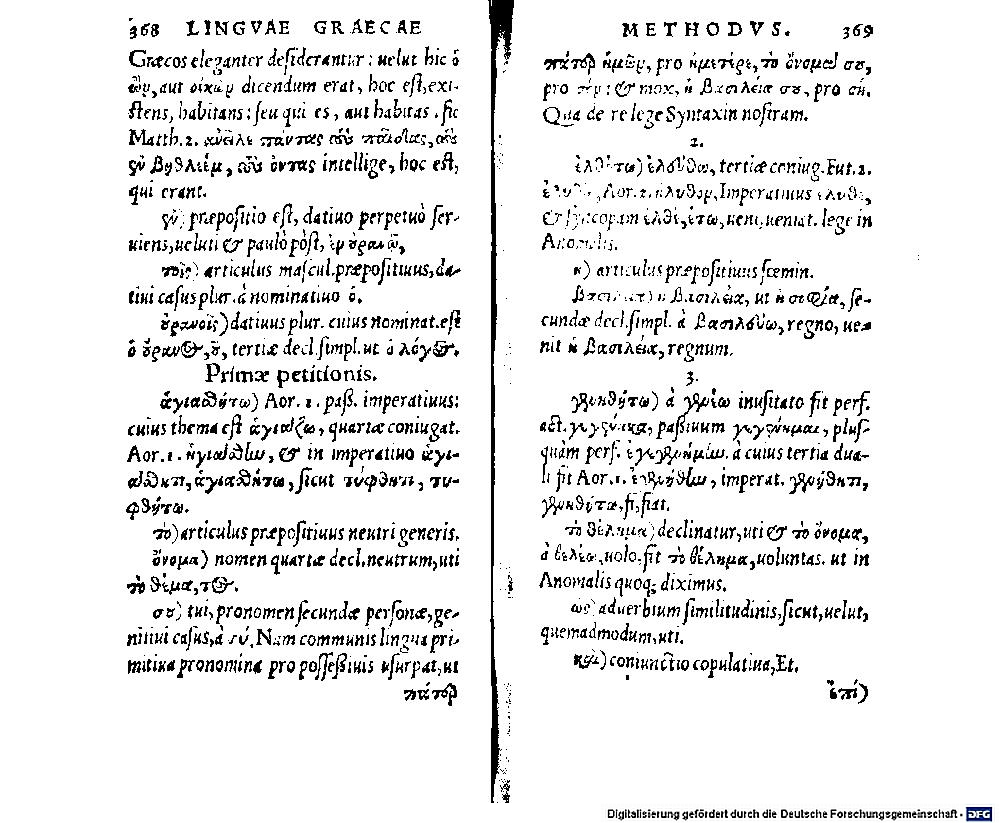 368 LINGVAE GRAECAE
Græcos eleganter desiderantur: uelut hic ὁ
ὢν, aut οἰκῶν dicendum erat, hoc est, exi-
stens, habitans: seu qui es, aut habitas. sic
Matth. 2. ἀνεῖλε πάντας τοὺς παῖδας, τοὺς
ἐν Βηθλεὲμ, τοὺς ὄντας intellige, hoc est,
qui erant.
ἐν) præpositio est, datiuo perpetuò ser-
uiens, ueluti & paulò pòst, ἐν οὐρανῷ,
τοῖς) articulus mascul. præpositiuus, da-
tiui casus plur. à nominatiuo ὁ.
οὐρανοῖς) datiuus plur. cuius nominat. est
ὁ οὐρανὸς, οῦ, tertiæ decl. simpl. ut ὁ λόγος.
Primæ petitionis.
ἁγιασθήτω) Aor. 1. pass. imperatiuus:
cuius thema est ἁγιάζω, quartæ coniugat.
Aor. 1. ἡγιάσθην, & in imperatiuo ἁγι-
άσθητι, ἁγιασθήτω, sicut τύφθητι, τυ-
φθήτω.
τὸ) articulus præpositiuus neutri generis.
ὄνομα) nomen quartæ decl. neutrum, uti
τὸ θέμα, τος.
σου) tui, pronomen secundæ personæ, ge-
nitiui casus, à σύ. Nam communis lingua pri-
mitiua pronomina pro possessiuis usurpat, ut
πάτερ
METHODVS. 369
πάτερ ἡμῶν, pro ἡμέτερε, τὸ ὄνομά σου,
pro σόν: & mox, ἡ βασιλεία σου, pro σή.
Qua de re lege Syntaxin nostram.
2.
ἐλθέτω) ἐλεύθω, tertiæ coniug. Fut. 2.
Aor. 2. ἤλυθον, Imperatiuus ἔλυθε,
& syncopam ἐλθὲ, έτω, ueni, ueniat. lege in
Anomalis.
ἡ) articulus præpositiuus fœmin.
βασιλεία) ἡ βασιλεία, ut ἡ σοφία, se-
cundæ decl. simpl. à βασιλεύω, regno, ue-
nit ἡ βασιλεία, regnum.
3.
γενηθήτω) à γενέω inusitato fit perf.
act. γεγένηκα, passiuum γεγένημαι, plus-
quàm perf. ἐγεγενήμην. à cuius tertia dua-
li fit Aor. 1. ἐγενήθην, imperat. γενήθητι,
γενηθήτω, fi, fiat.
τὸ θέλημα) declinatur, uti & τὸ ὄνομα,
à θελέω, uolo. fit τὸ θέλημα, uoluntas. ut in
Anomalis quoq; diximus.
ὡς) aduerbium similitudinis, sicut, uelut,
quemadmodum, uti.
καὶ) coniunctio copulatiua, Et.
ἐπί)
Digitalisierung gefördert durch die Deutsche Forschungsgemeinschaft - DFG